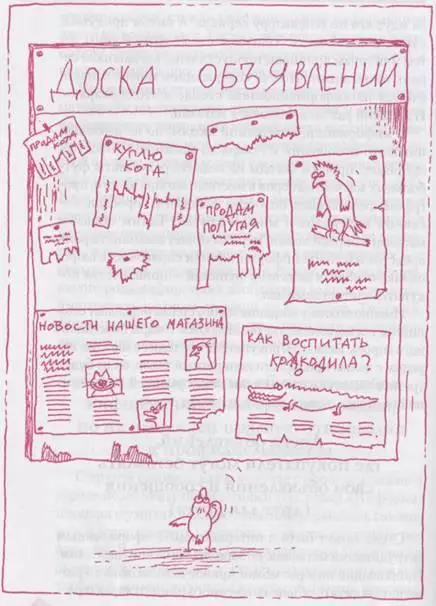 ДОСКА ОБЪЯВЛЕНИЙ
ПРОДАМ
КОТА
КУПЛЮ
КОТА
ПРОДАМ
ПОПУГАЯ
НОВОСТИ НАШЕГО МАГАЗИНА
КАК ВОСПИТАТЬ
КРОКОДИЛА?